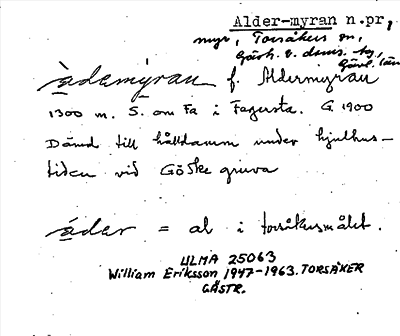 Alder-myran n.pr.
myr, Torsåkers sn,
Gästr. ö. doms. hg,
Gävl. län
àdemỳran f. Aldermyran
1300 m. S. om Fa i Fagersta. G 1900
Dämd till hålldamm under hjulhus-
tiden vid Göske gruva
àder = al i torsåkersmålet.
ULMA 25063
William Eriksson 1947-1963. TORSÅKER
GÄSTR.